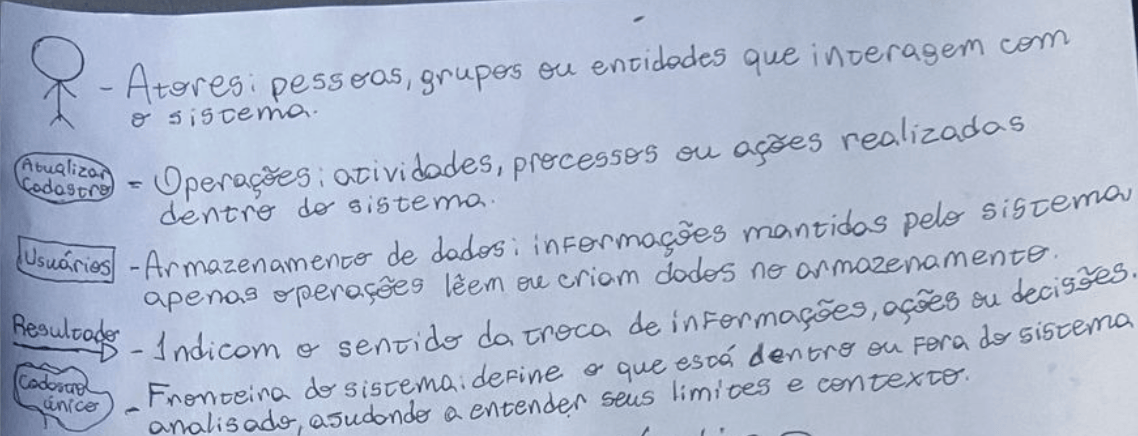 - Atores: pessoas, grupos ou entidades que interagem com
o sistema.
Atualizar
Cadastro
= Operações: atividades, processos ou ações realizadas
dentro do sistema.
Usuários
- Armazenamento de dados: informações mantidas pelo sistema,
apenas operações lêem ou criam dados no armazenamento.
Resultado
- Indicam o sentido da troca de informações, ações ou decisões.
Cadastro
único
- Fronteira do sistema: define o que está dentro ou fora do sistema
analisado, asudando a entender seus limites e contexto.